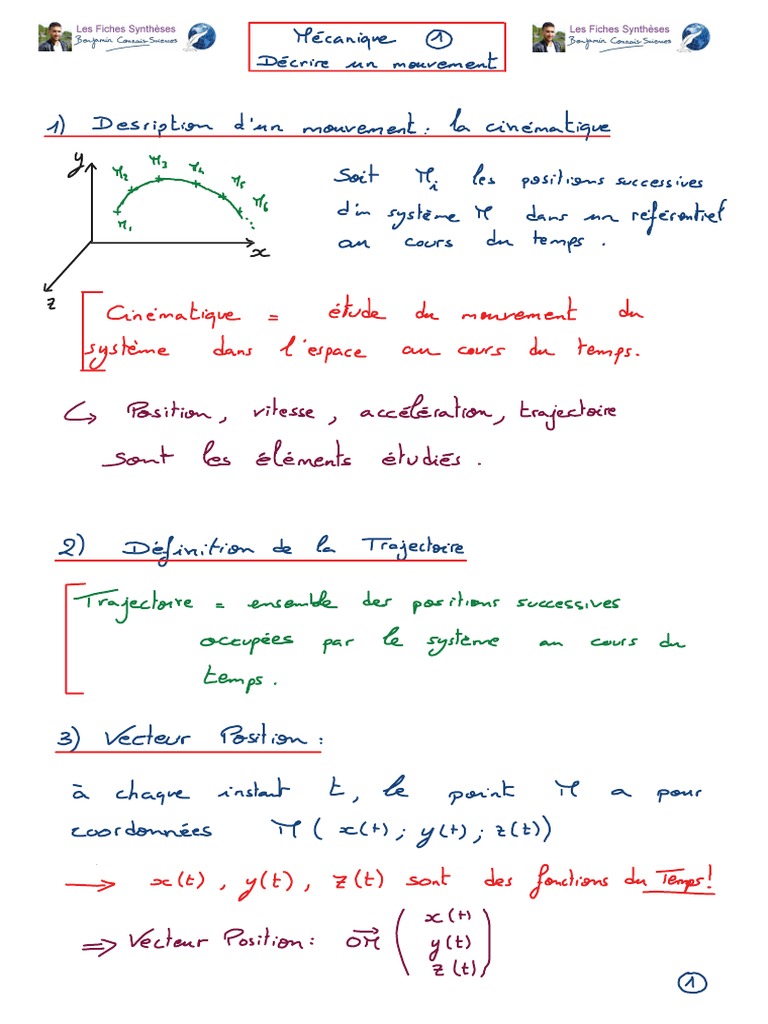 Les Fiches Synthèses
Benjamin Connais Sciences
Mécanique 1
Décrire un mouvement
Les Fiches Synthèses
Benjamin Connais Sciences
1) Desription d'un mouvement : la cinématique
y
M1 M2 M3 M4 M5 M6
x
z
Soit Mi les positions successives
d'un système M dans un référentiel
au cours du temps .
Cinématique = étude du mouvement du
système dans l'espace au cours du temps.
↪ Position, vitesse, accélération, trajectoire
sont les éléments étudiés .
2) Définition de la Trajectoire
Trajectoire = ensemble des positions successives
occupées par le système au cours du
temps .
3) Vecteur Position :
à chaque instant t, le point M a pour
coordonnées M ( x(t) ; y(t) ; z(t))
→ x(t) , y(t) , z(t) sont des fonctions du Temps !
⇒ Vecteur Position : OM→ ( x(t)
y(t)
z(t) )
1